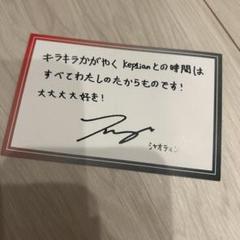 キラキラかがやく Keplianとの時間は
すべてわたしのたからものです!
大大大大好き!
シャオティン